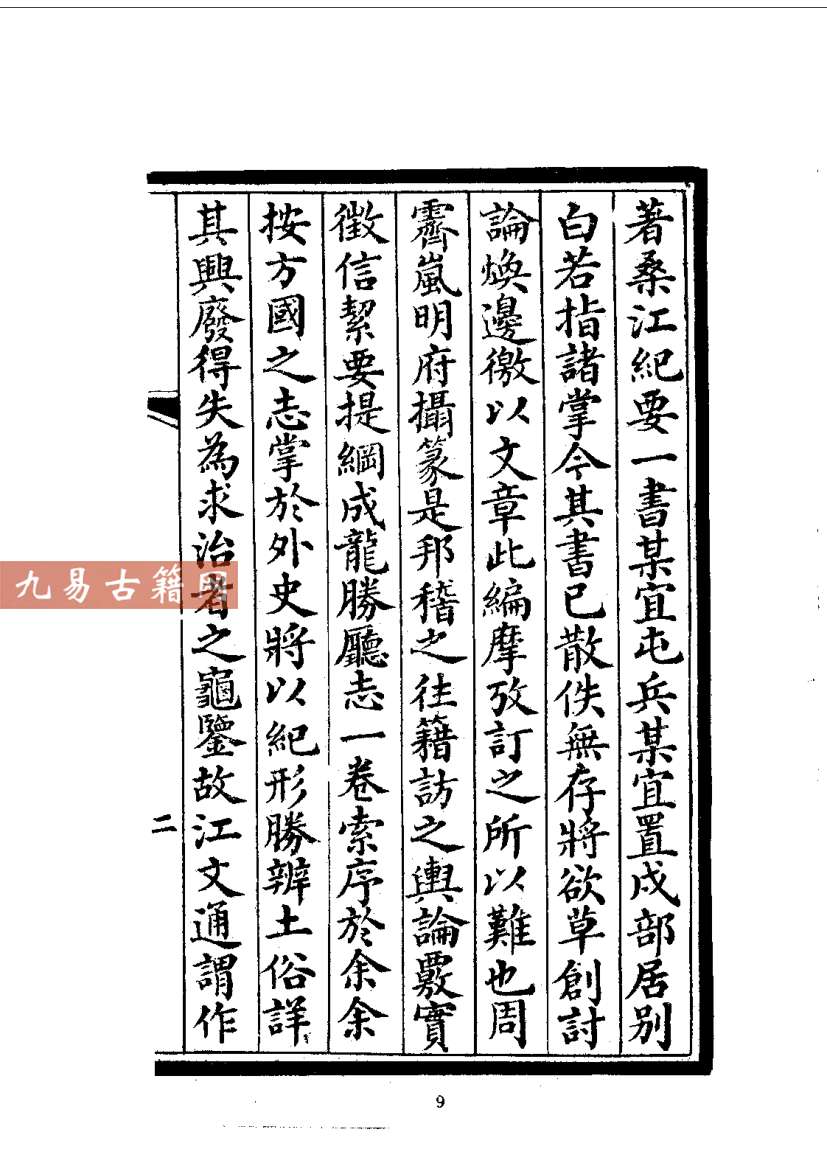 著桑江紀要一書某宜屯兵某宜置戍部居别
白若指諸掌今其書已散佚無存將欲草創討
論煥邊徼以文章此編摩攷訂之所以難也周
霽嵐明府攝篆是邦稽之往籍訪之輿論覈實
徵信絜要提綱成龍勝廳志一卷索序於余余
按方國之志掌於外史將以紀形勝辨土俗詳
其興廢得失為求治者之龜鑒故江文通謂作
二
九易古籍网
9